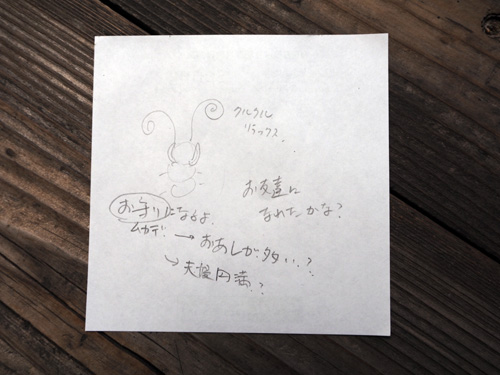 クルクル
リラックス。
お友達に
なれたかな?
お守りになるよ。
ムカデ。
→ おあしが多い。?
→ 夫婦円満。?